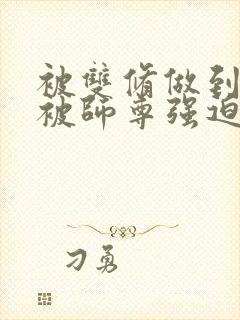 被雙脩做到
被師尊强迫
刁勇